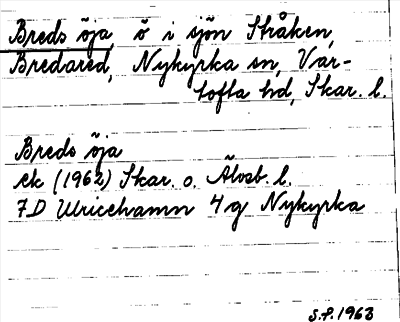 Breds öja, ö i sjön Stråken,
Bredared, Nykyrka sn, Var-
tofta hd, Skar. l.
Breds öja
ek (1962) Skar. o. Älvsb. l.
7D Ulricehamn 4g Nykyrka
S.F. 1963